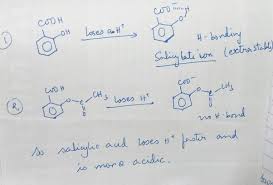 COOH
OH
① loses an H⁺
COO⁻
H
O
H-bonding
Salicylate ion (extra stable)
②
COOH
O-C-CH₃
O
loses H⁺
COO⁻
O-C-CH₃
O
no H-bond
so salicylic acid loses H⁺ faster and
is more acidic.